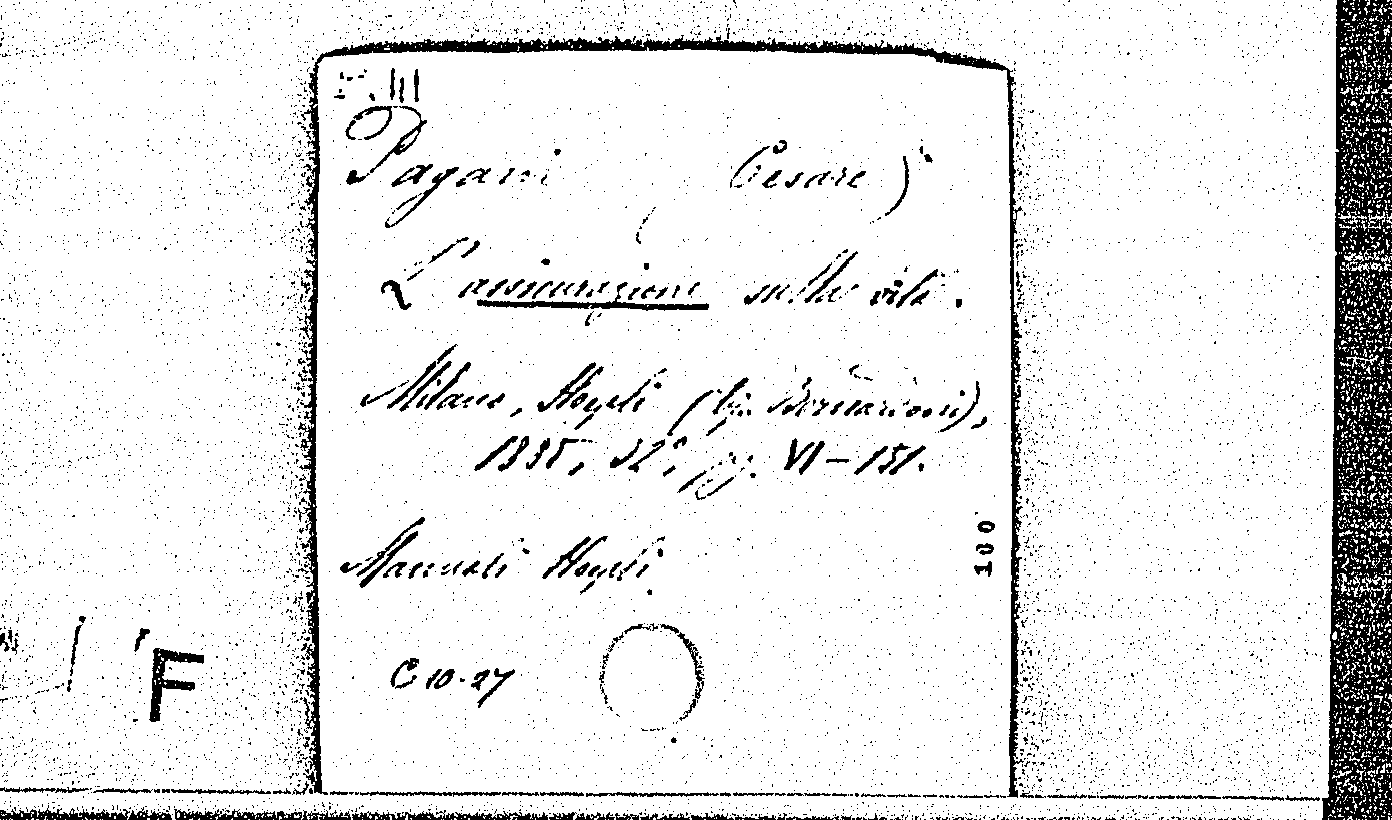 III
Pagani (Cesare)
L'assicurazione sulla vita.
Milano, Hoepli (tip. Bernardoni),
1895, 32°, pg. VI-151.
100
Manuali Hoepli.
C 10-27
F